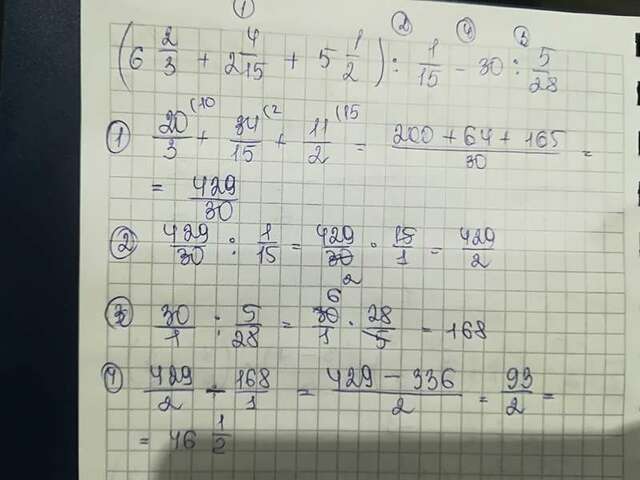 ① ② ④ ③
(6 2/3 + 2 4/15 + 5 1/2) : 1/15 - 30 : 5/28
① 20/3 (10 + 34/15 (2 + 11/2 (15 = (200 + 64 + 165)/30 =
= 429/30
② 429/30 : 1/15 = 429/30 2 · 15/1 = 429/2
③ 30/1 : 5/28 = 30 6/1 · 28/5 = 168
④ 429/2 - 168/1 = (429 - 336)/2 = 93/2 =
= 46 1/2